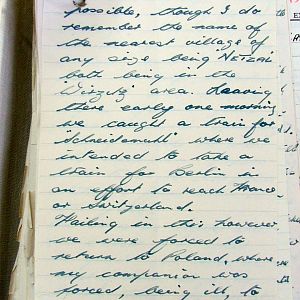 possible, though I do
remember the name of
the nearest village of
any size being NETZAL
both being in the
area. Leaving
there early one morning
we caught a train for
'Schneidemuhl' where we
intended to take a
train for Berlin in
an effort to reach France
or Switzerland.
Failing in this, however,
we were forced to
return to Poland, where
my companion was
forced, being ill, to